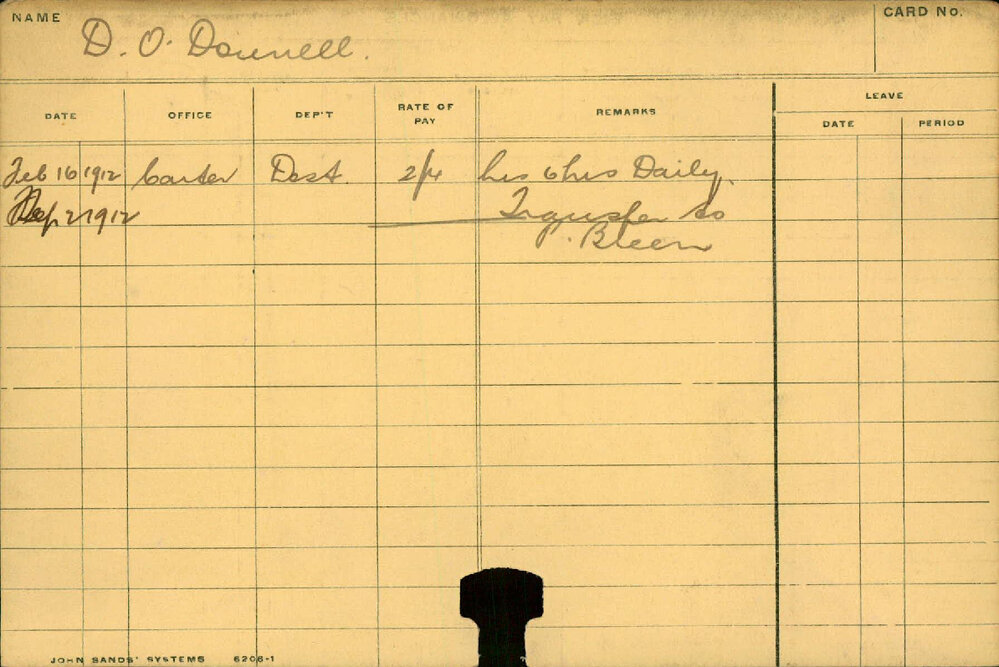 NAME D. O. Donnell. CARD No.
DATE OFFICE DEP'T RATE OF PAY REMARKS LEAVE
DATE PERIOD
Feb 16 1912 Carter Dest. 2/4 hrs 6 hrs Daily.
Sep 2 1912 Transfer to
Cleen
JOHN SANDS' SYSTEMS 6206-1